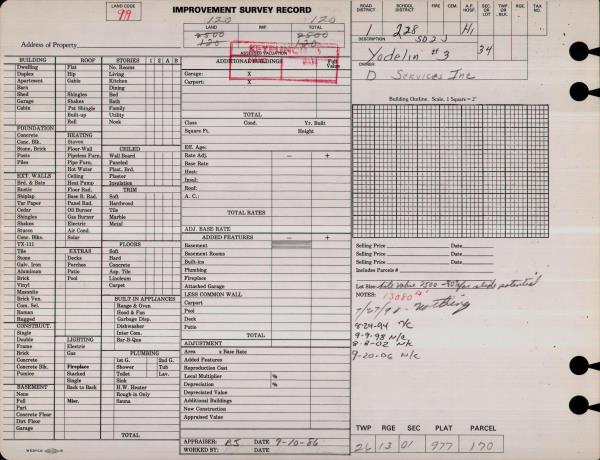 99
IMPROVEMENT SURVEY RECORD
120 120
LAND IMP. TOTAL
2500 2500
120 120
ASSESSED VALUATION
Address of Property
ROAD DISTRICT SCHOOL DISTRICT FIRE CEM. A.F. HOSP. SEC OR LOT TWP OR BLK. RGE. TAX NO.
1 228 H1
DESCRIPTION
Yodelin #3 34
OWNER
D Services Inc
BUILDING ROOF STORIES 1 2 A B
Dwelling Flat No. Rooms
Duplex Hip Living
Apartment Gable Kitchen
Barn Dining
Shed Shingles Bed
Garage Shakes Bath
Cabin Pat Shingle Family
Built-up Utility
Roll Nook
FOUNDATION
Concrete HEATING
Conc. Blk. Stoves
Stone, Brick Floor-Wall CEILED
Posts Pipeless Furn. Wall Board
Piles Pipe Furn. Paneled
Hot Water Plast. Brd.
EXT. WALLS Ceiling Plaster
Brd. & Bats Heat Pump Insulation
Rustic Floor Rad. TRIM
Shiplap Base B. Rad. Soft
Tar Paper Panel Rad. Hardwood
Cedar Oil Burner Tile
Shingles Gas Burner Marble
Shakes Electric Metal
Stucco Air Cond.
Conc. Blks. Solar
TX-111 FLOORS
Tile EXTRAS Soft
Stone Decks Hard
Galv. Iron Porches Concrete
Aluminum Patio Asp. Tile
Brick Pool Linoleum
Vinyl Carpet
Masonite
Brick Ven. BUILT-IN APPLIANCES
Com. Sel. Range & Oven
Roman Hood & Fan
Rugged Garbage Disp.
CONSTRUCT. Dishwasher
Single Inter Com.
Double LIGHTING Bar-B-Que
Frame Electric
Brick Gas PLUMBING
Concrete 1st G. 2nd G.
Concrete Blk. Fireplace Shower Tub
Pumice Stacked Toilet Lav.
Single Sink
BASEMENT Back to Back H.W. Heater
None Rough-in Only
Full Misc. Sauna
Part
Concrete Floor
Dirt Floor
Garage
TOTAL
ADDITIONAL BUILDINGS Full Value
Garage: X
Carport: X
TOTAL
Class Cond. Yr. Built
Square Ft. Height
Eff. Age:
Rate Adj. − +
Base Rate
Heat:
Insul:
Roof:
A. C.:
TOTAL RATES
ADJ. BASE RATE
ADDED FEATURES − +
Basement
Basement Rooms
Built-ins
Plumbing
Fireplace
Attached Garage
LESS COMMON WALL
Carport
Pool
Deck
Patio
TOTAL
ADJUSTMENT
Area x Base Rate
Added Features
Reproduction Cost
Local Multiplier %
Depreciation %
Depreciated Value
Additional Buildings
New Construction
Appraised Value
APPRAISER: BJ DATE 9-10-86
WORKED BY: DATE
Building Outline. Scale, 1 Square = 2'
Selling Price Date
Selling Price Date
Selling Price Date
Includes Parcels #
Lot Size: site value 2500 slide potential
NOTES: nothing
8-24-94 N/C
9-9-98 N/C
8-8-02 N/C
9-20-06 N/C
TWP RGE SEC PLAT PARCEL
26 13 01 977 170